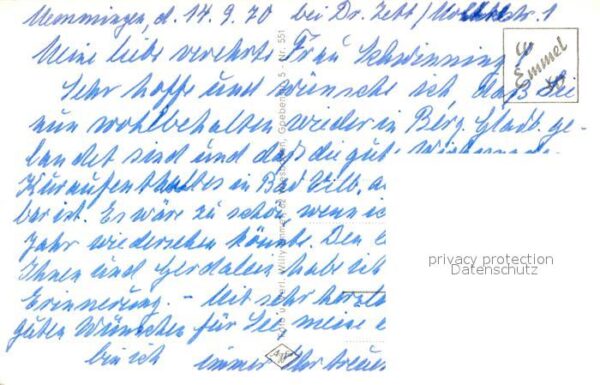 Memmingen, d. 14.9.70 bei Dr. Zett / Moltkestr. 1
Meine liebe verehrte Frau Schwinning!
Sehr hoffe und wünsche ich, daß Sie
nun wohlbehalten wieder in Berg. Gladb. ge-
landet sind und daß die gute
Kuraufenthaltes in Bad Vilb.
bar ist. Es wäre zu schön, wenn ich
Jahr wiedersehen könnte. Den
Ihnen und Gerdalein hab ich
Erinnerung. – Mit sehr herzl
guten Wünschen für Sie, meine
bin ich immer Ihr treue
Emmel
privacy protection
Datenschutz